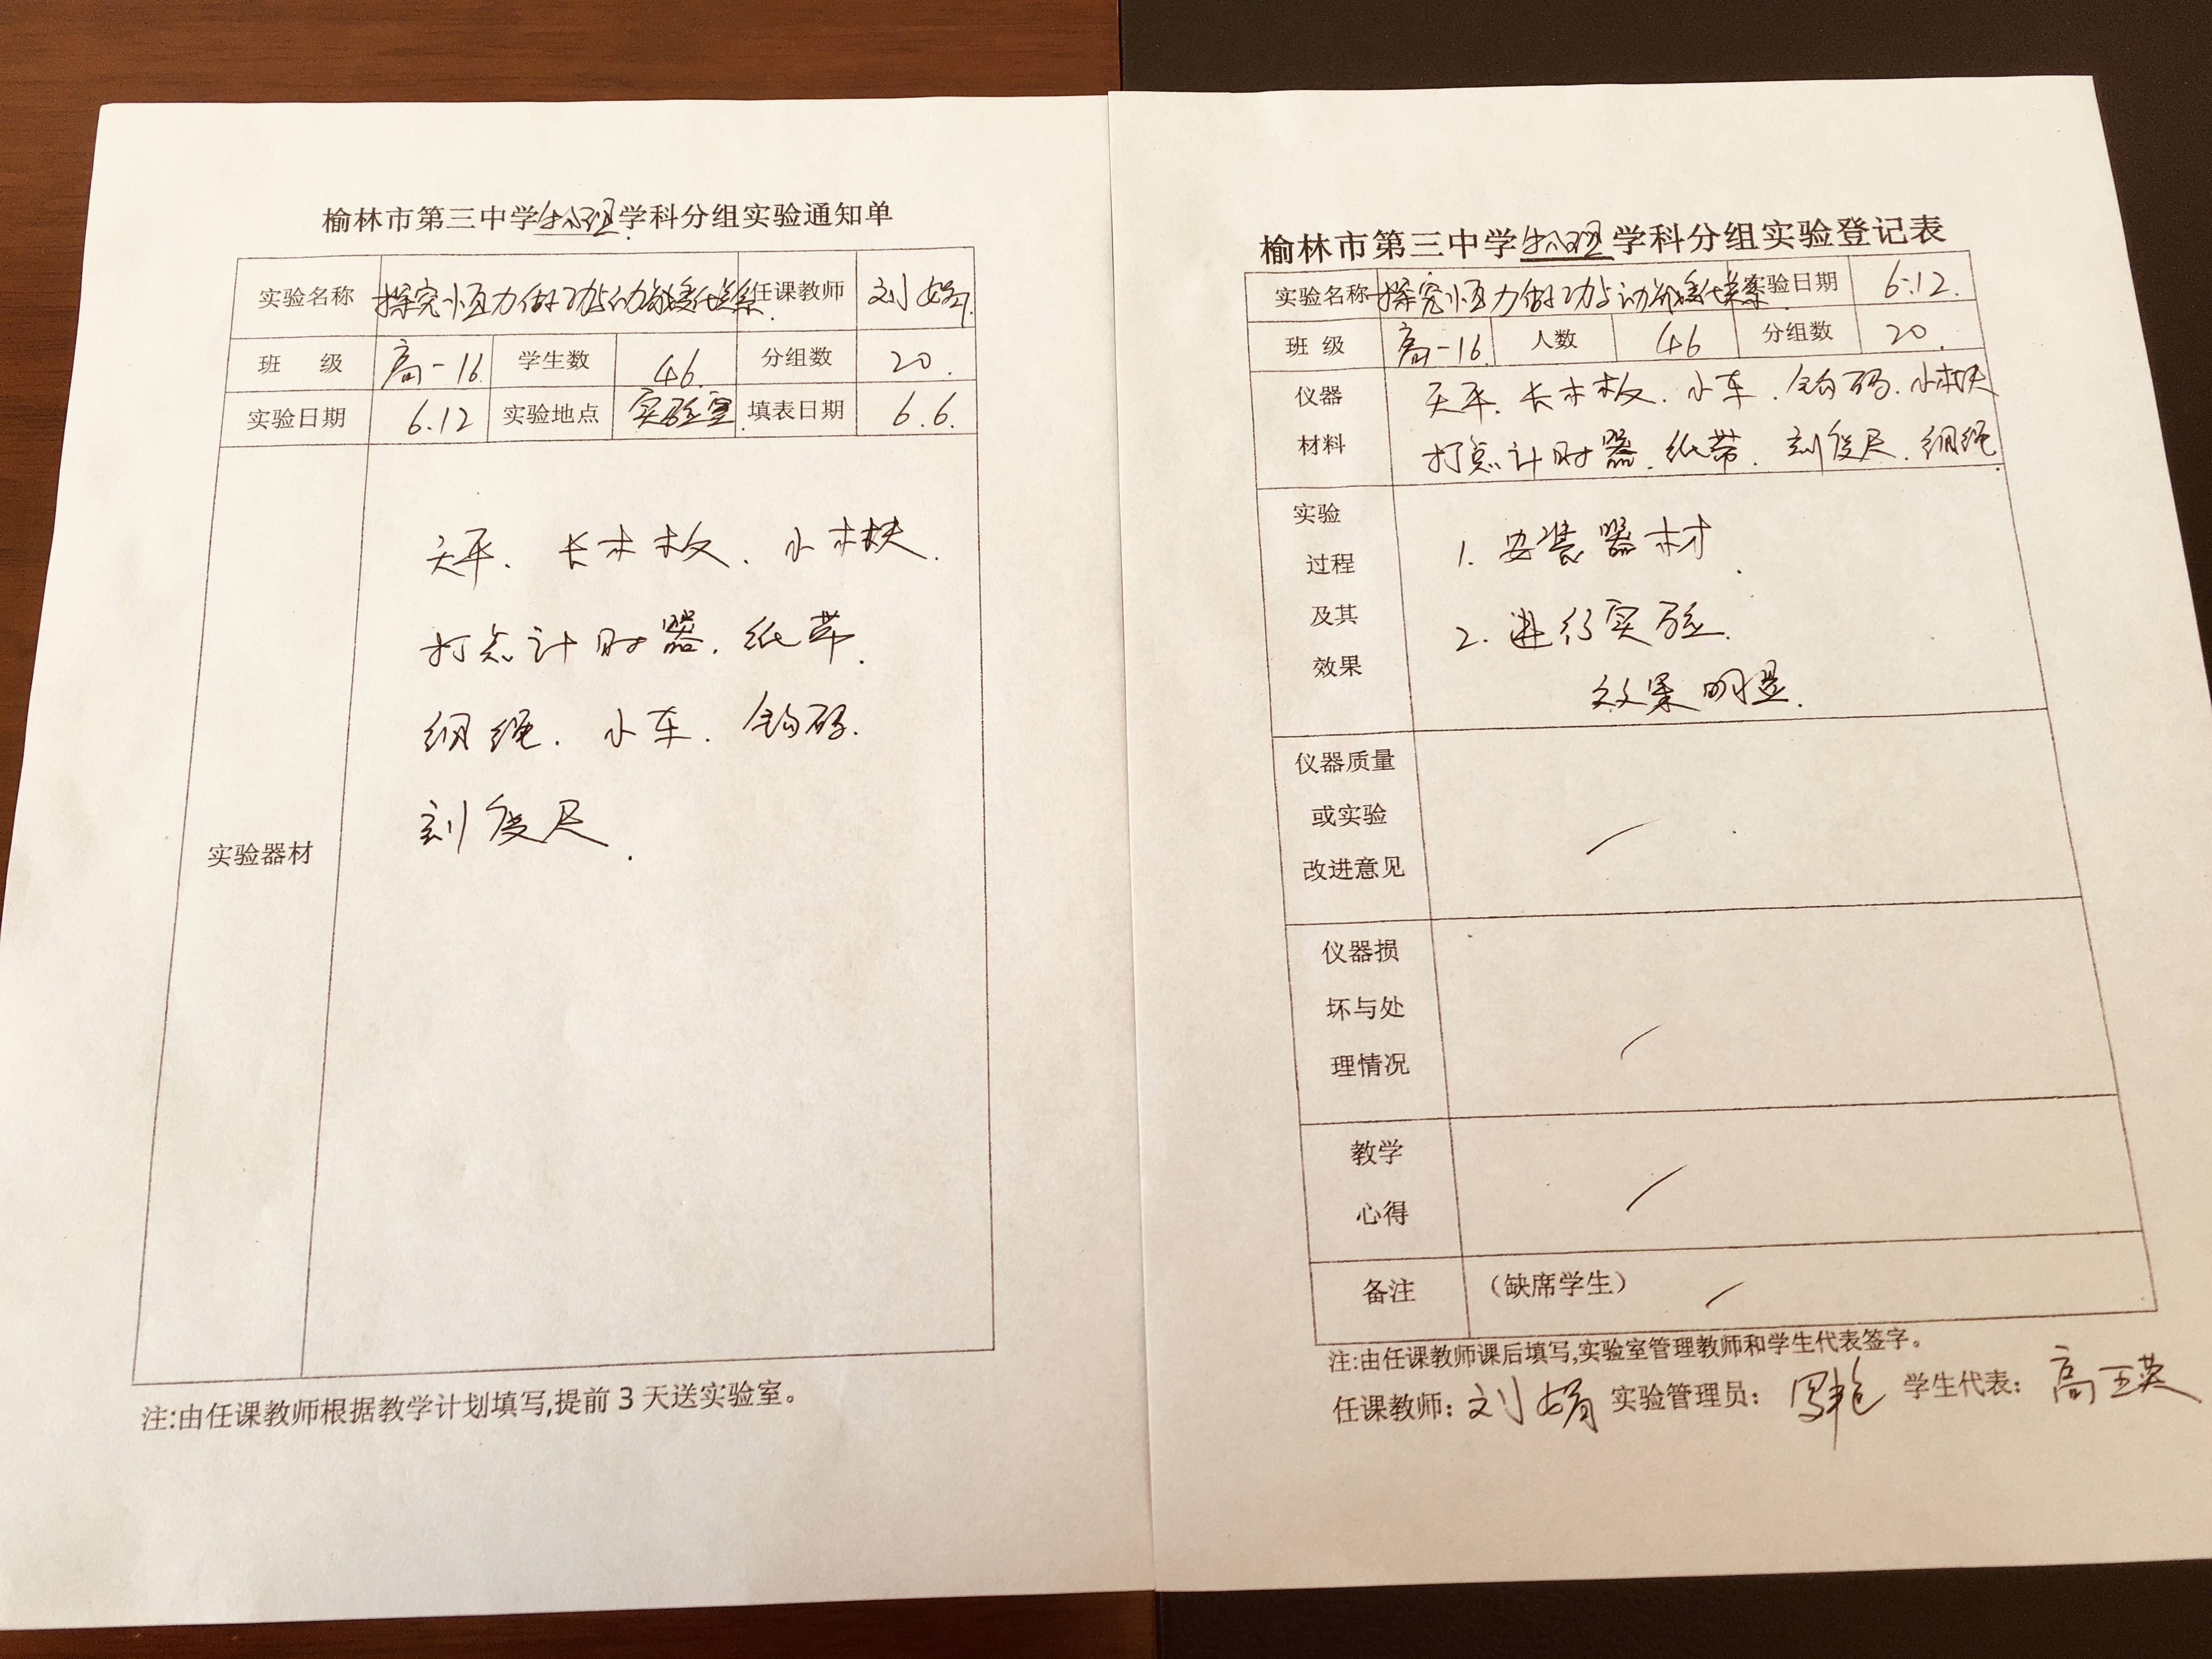 榆林市第三中学物理学科分组实验通知单
实验名称 探究恒力做功与动能变化关系 任课教师 刘娟
班 级 高一16 学生数 46 分组数 20
实验日期 6.12 实验地点 实验室 填表日期 6.6
实验器材
天平、长木板、小木块、
打点计时器、纸带、
细绳、小车、钩码、
刻度尺.
注:由任课教师根据教学计划填写,提前3天送实验室。
榆林市第三中学物理学科分组实验登记表
实验名称 探究恒力做功与动能变化关系 实验日期 6.12
班 级 高一16 人数 46 分组数 20
仪器 天平、长木板、小车、钩码、小木块
材料 打点计时器、纸带、刻度尺、细绳
实验
过程
及其
效果
1. 安装器材.
2. 进行实验.
效果明显.
仪器质量
或实验
改进意见
仪器损
坏与处
理情况
教学
心得
备注 (缺席学生)
注:由任课教师课后填写,实验室管理教师和学生代表签字。
任课教师: 刘娟 实验管理员: 学生代表: 高